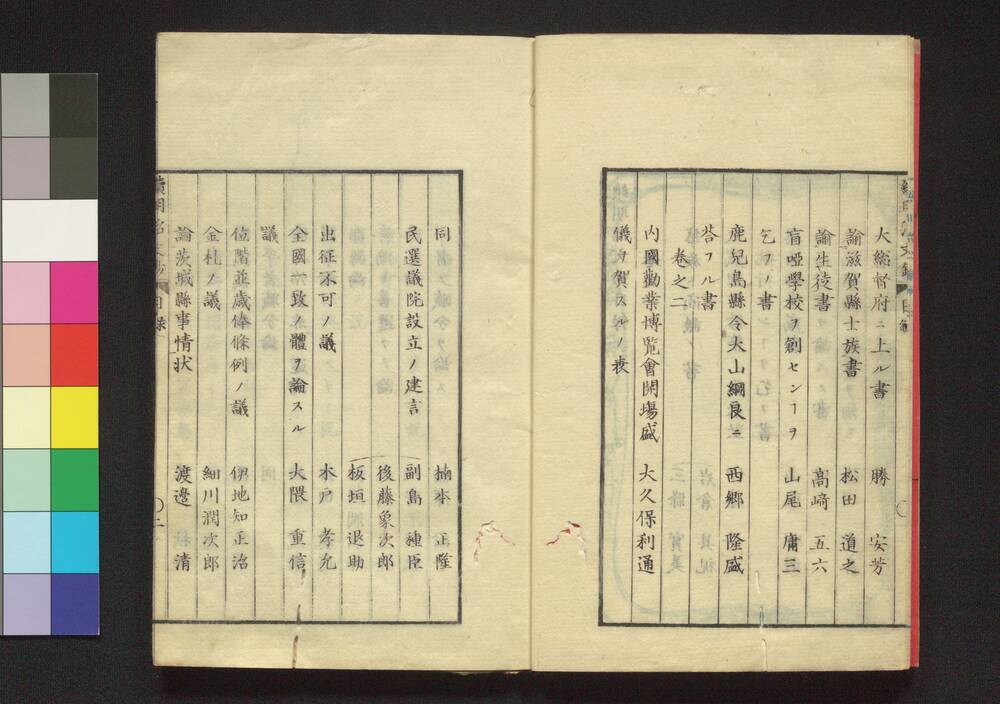 大総督府ニ上ル書 勝 安芳
諭滋賀縣士族書 松田 道之
諭生徒書 高﨑 五六
盲唖學校ヲ創センヿヲ 山尾 庸三
乞フノ書
鹿兒島縣令大山綱良ニ 西郷 隆盛
荅フル書
卷之二
内國勸業博覧會開塲盛 大久保利通
儀ヲ賀スルノ表
同 楠本 正隆
民選議院設立ノ建言 副島 種臣
後藤象次郎
板垣退助
出征不可ノ議 木戸 孝允
全國一致ノ體ヲ論スル 大隈 重信
議
位階並歳俸條例ノ議 伊地知正治
金札ノ議 細川潤次郎
論茨城縣事情状 渡邉 清
目録
二